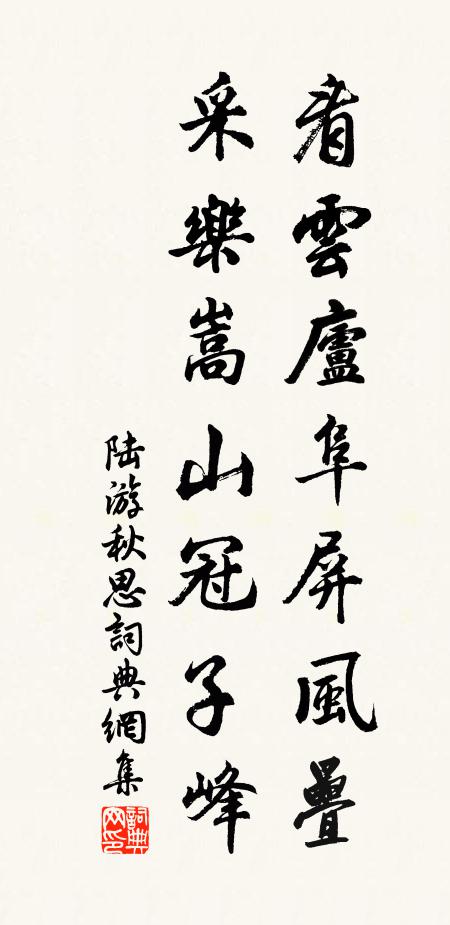 看雲廬阜屏風疊
采樂嵩山冠子峰
陆游秋思詞典網集
詞典网印